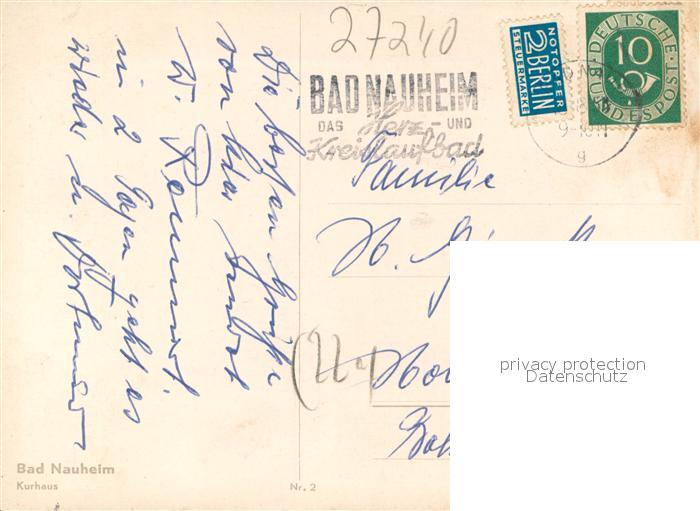 27240
BAD NAUHEIM
DAS Herz- UND
Kreislaufbad
NOTOPFER
2 BERLIN
STEUERMARKE
DEUTSCHE
10
BUNDESPOST
g
Die besten Grüße
von hier sendet
W.
in 2 Tagen geht es
wieder n. Dortmund
Familie
H.
(224
privacy protection
Datenschutz
Bad Nauheim
Kurhaus
Nr. 2